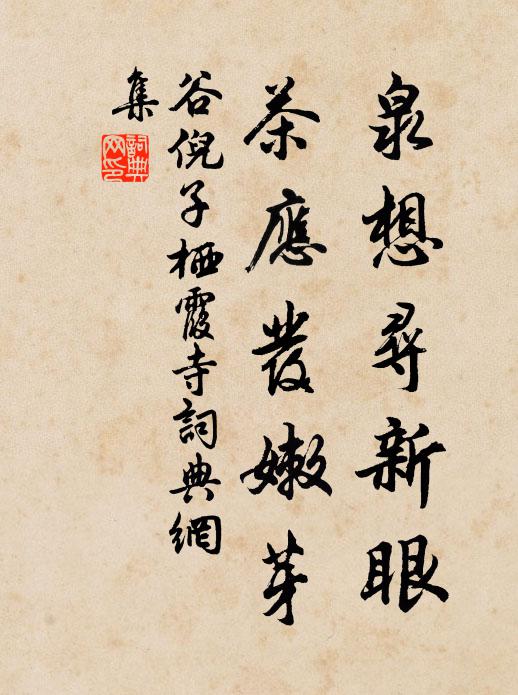 泉想尋新眼
茶應發嫩芽
谷倪子栖霞寺詞典網
集
詞典網印